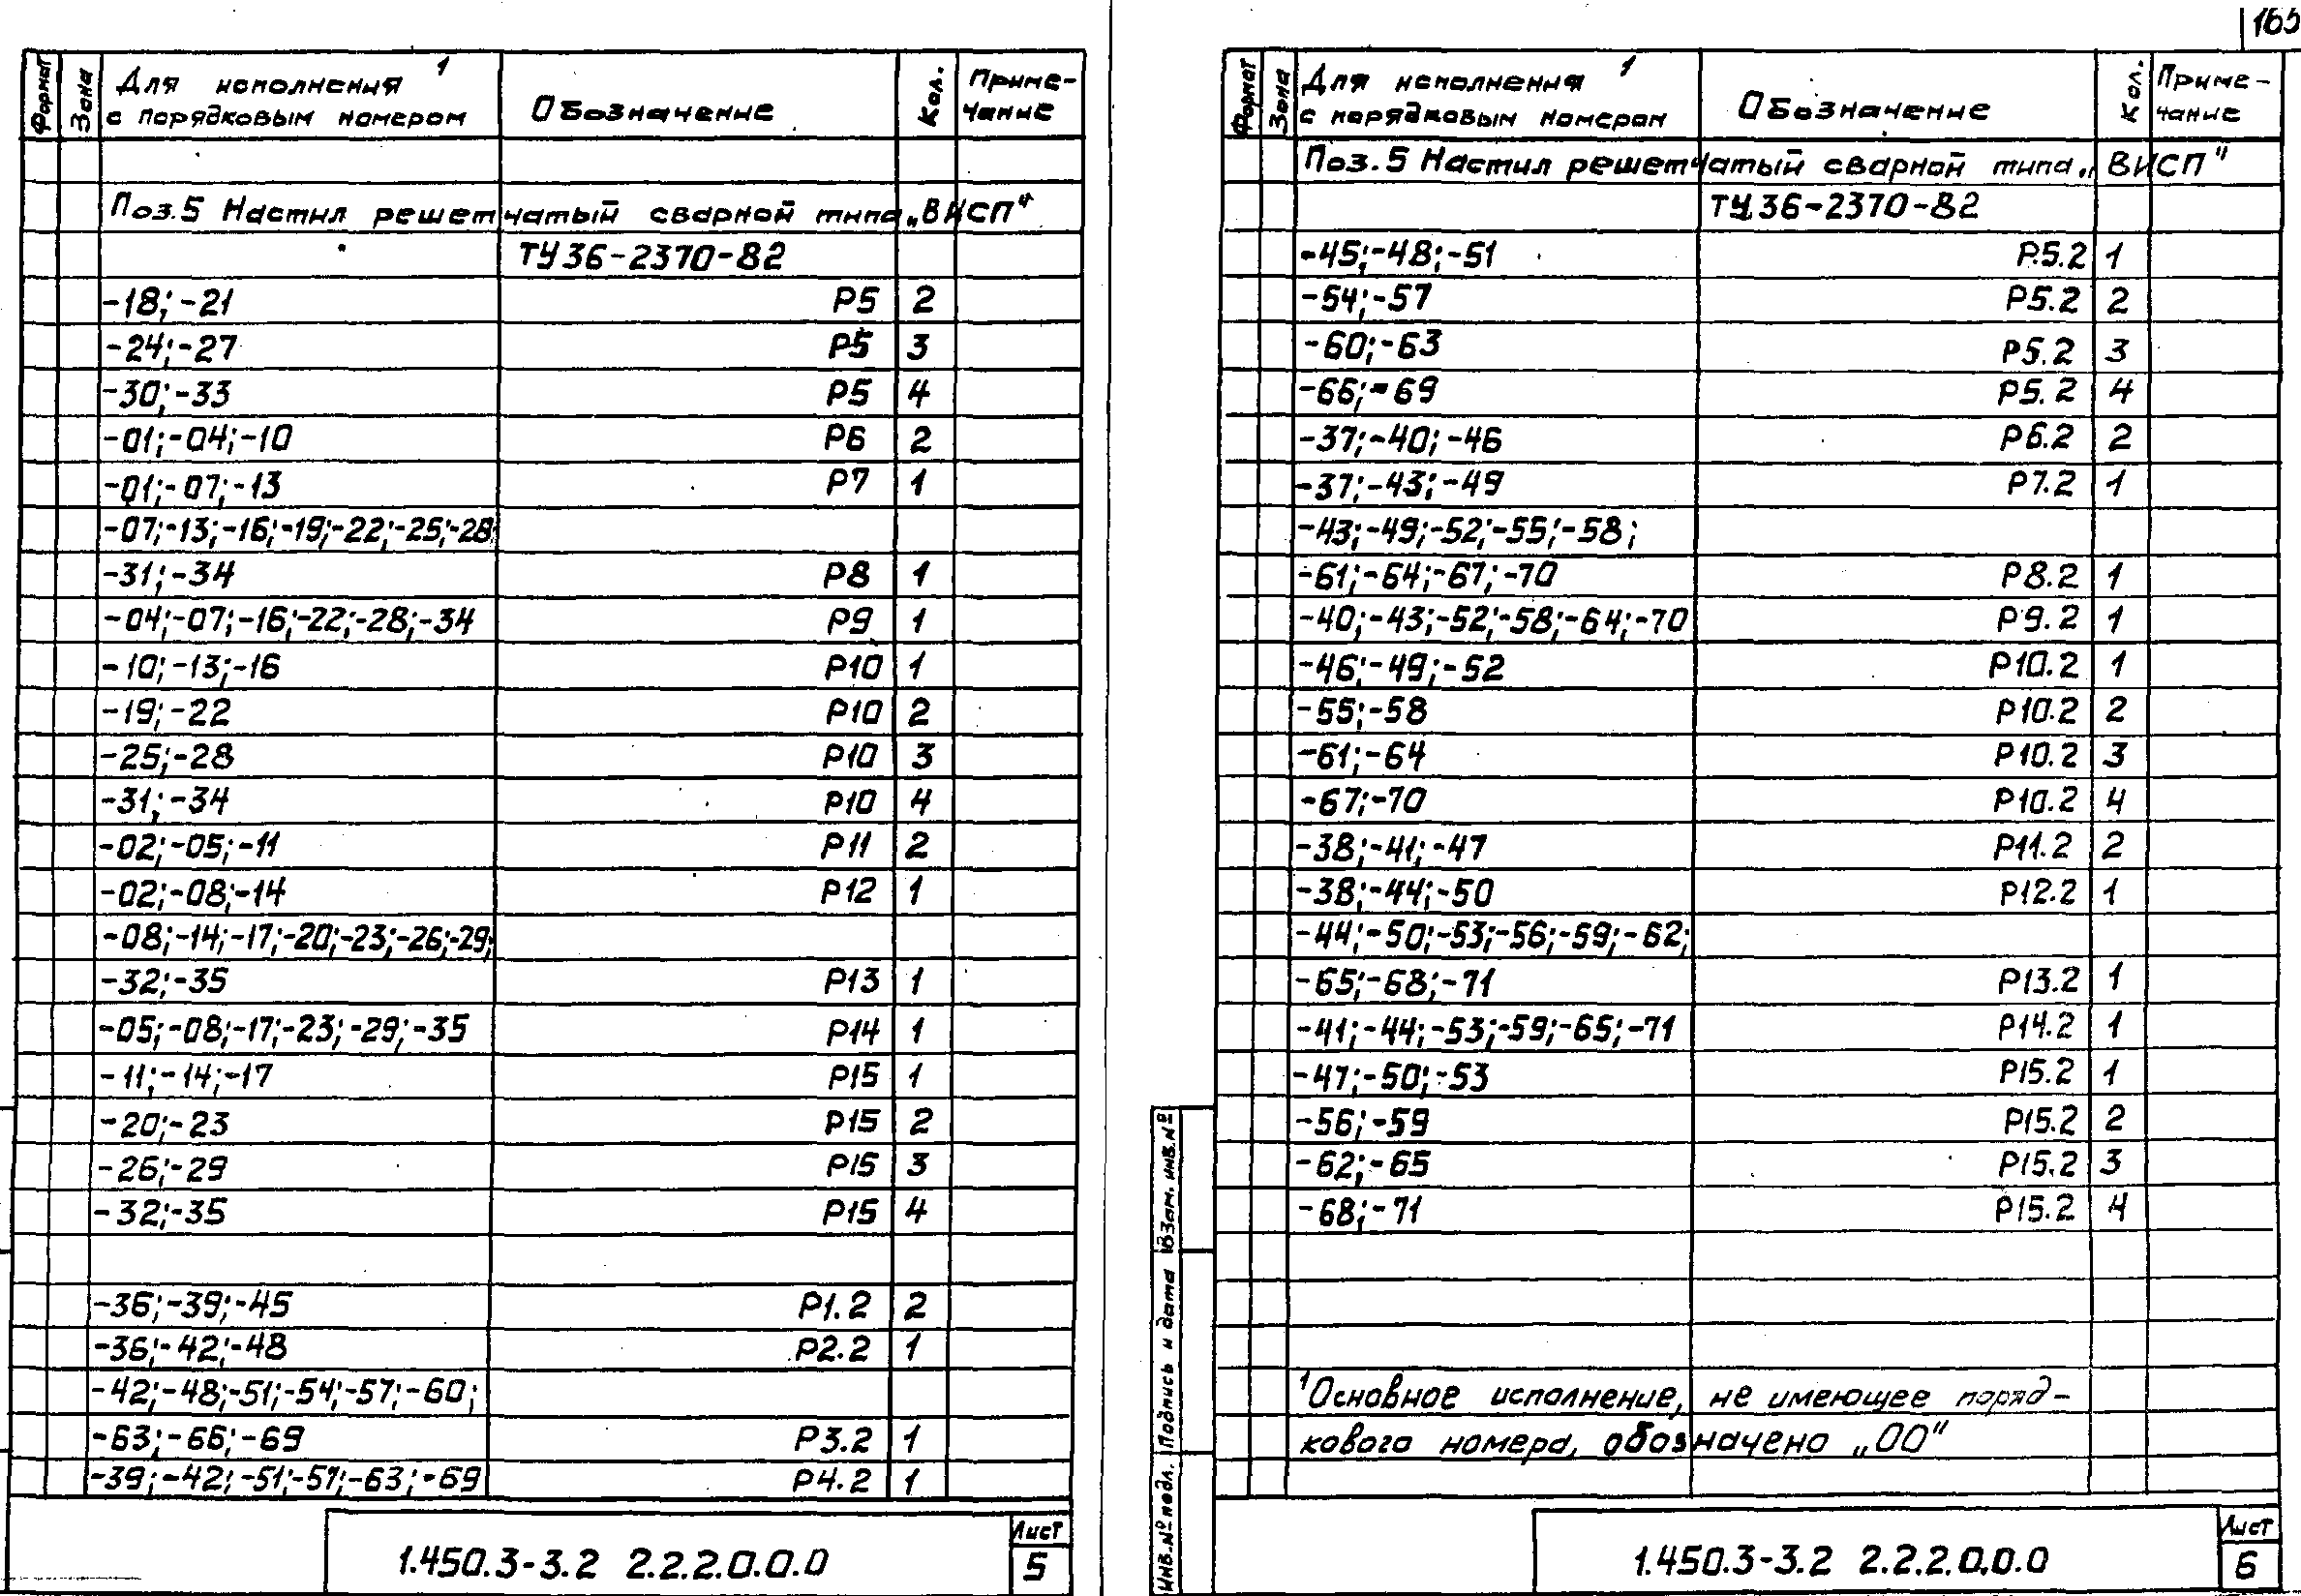 165
Формат Зона Для исполнения ¹ с порядковым номером Обозначение Кол. Приме-
чание
Поз.5 Настил решетчатый сварной типа „ВИСП"
ТУ36-2370-82
-18; -21 Р5 2
-24;-27 Р5 3
-30;-33 Р5 4
-01;-04;-10 Р6 2
-01;-07;-13 Р7 1
-07;-13;-16;-19;-22;-25;-28;
-31;-34 Р8 1
-04;-07;-16;-22;-28;-34 Р9 1
-10;-13;-16 Р10 1
-19;-22 Р10 2
-25;-28 Р10 3
-31;-34 Р10 4
-02;-05;-11 Р11 2
-02;-08;-14 Р12 1
-08;-14;-17;-20;-23;-26;-29;
-32;-35 Р13 1
-05;-08;-17;-23;-29;-35 Р14 1
-11;-14;-17 Р15 1
-20;-23 Р15 2
-26;-29 Р15 3
-32;-35 Р15 4
-36;-39;-45 Р1.2 2
-36;-42;-48 Р2.2 1
-42;-48;-51;-54;-57;-60;
-63;-66;-69 Р3.2 1
-39;-42;-51;-57;-63;-69 Р4.2 1
1.450.3-3.2 2.2.2.0.0.0
Лист
5
Формат Зона Для исполнения ¹ с порядковым номером Обозначение Кол. Приме-
чание
Поз.5 Настил решетчатый сварной типа „ВИСП"
ТУ36-2370-82
-45;-48;-51 Р.5.2 1
-54;-57 Р5.2 2
-60;-63 Р5.2 3
-66;-69 Р5.2 4
-37;-40;-46 Р6.2 2
-37;-43;-49 Р7.2 1
-43;-49;-52;-55;-58;
-61;-64;-67;-70 Р8.2 1
-40;-43;-52;-58;-64;-70 Р9.2 1
-46;-49;-52 Р10.2 1
-55;-58 Р10.2 2
-61;-64 Р10.2 3
-67;-70 Р10.2 4
-38;-41;-47 Р11.2 2
-38;-44;-50 Р12.2 1
-44;-50;-53;-56;-59;-62;
-65;-68;-71 Р13.2 1
-41;-44;-53;-59;-65;-71 Р14.2 1
-47;-50;-53 Р15.2 1
-56;-59 Р15.2 2
-62;-65 Р15.2 3
-68;-71 Р15.2 4
¹Основное исполнение, не имеющее поряд-
кового номера, обозначено „00"
Инв.№ подл. Подпись и дата Взам. инв.№
1.450.3-3.2 2.2.2.0.0.0
Лист
6